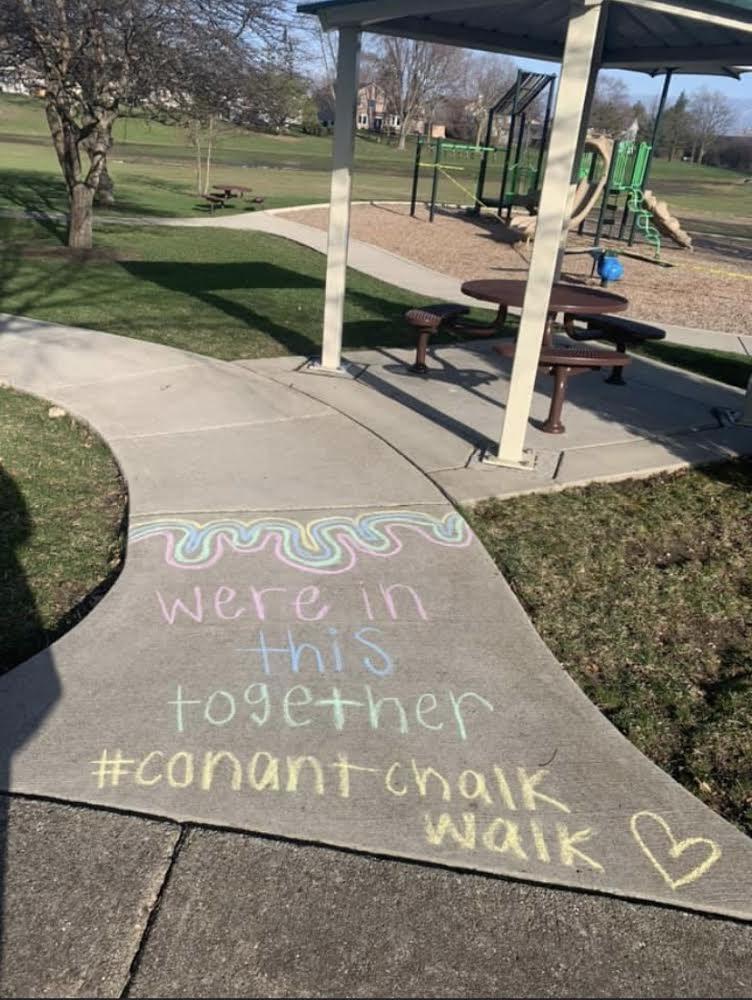 were in
this
together
#conantchalk
walk